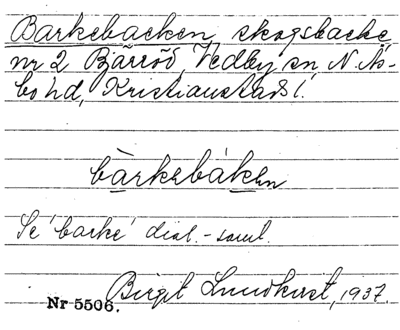 Barkebacken, skogsbacke
nr 2 Bjärröd, Vedby sn N. Ås-
bo hd, Kristianstads l.
bàrkebákən
Se 'barke' dial.-saml.
Birgit Lundkvist, 1937.
Nr 5506.